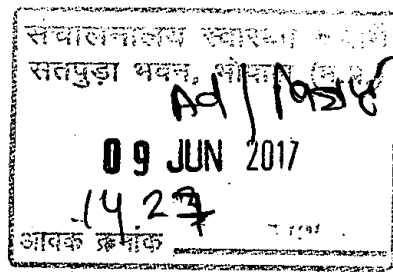 संचालनालय स्वास्थ्य
सतपुड़ा भवन, भोपाल (म.प्र.)
Ad /
09 JUN 2017
1427
आवक क्रमांक